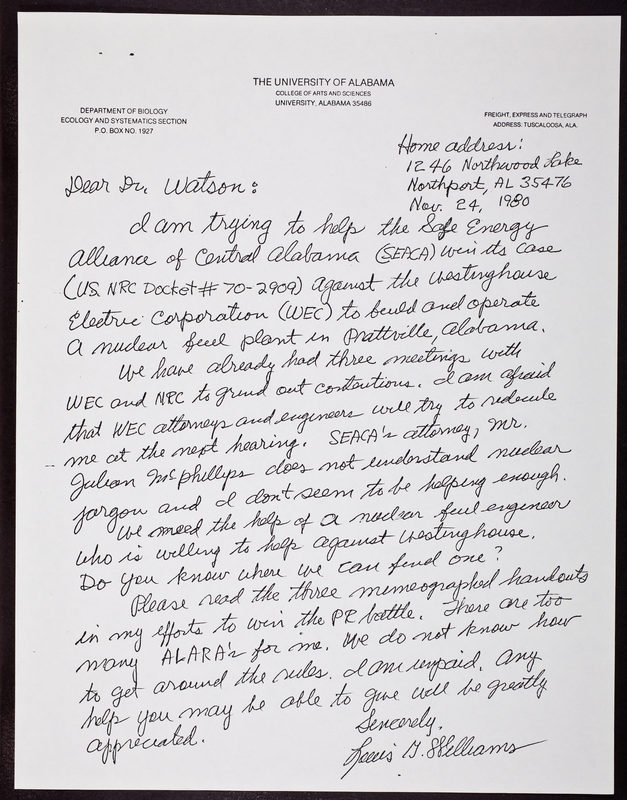 THE UNIVERSITY OF ALABAMA
COLLEGE OF ARTS AND SCIENCES
UNIVERSITY, ALABAMA 35486
DEPARTMENT OF BIOLOGY
ECOLOGY AND SYSTEMATICS SECTION
P.O. BOX NO. 1927
FREIGHT, EXPRESS AND TELEGRAPH
ADDRESS: TUSCALOOSA, ALA.
Home address:
1246 Northwood Lake
Northport, AL 35476
Nov. 24, 1980
Dear Dr. Watson:
I am trying to help the Safe Energy
Alliance of Central Alabama (SEACA) win its case
(US NRC Docket # 70-2909) against the Westinghouse
Electric Corporation (WEC) to build and operate
a nuclear fuel plant in Prattville, Alabama.
We have already had three meetings with
WEC and NRC to grind out contentions. I am afraid
that WEC attorneys and engineers will try to redicule
me at the next hearing. SEACA's attorney, Mr.
Julian McPhillips does not understand nuclear
jargon and I don't seem to be helping enough.
We need the help of a nuclear fuel engineer
who is willing to help against Westinghouse.
Do you know where we can find one?
Please read the three mimeographed handouts
in my efforts to win the PR battle. There are too
many ALARA's for me. We do not know how
to get around the rules. I am unpaid. Any
help you may be able to give will be greatly
appreciated.
Sincerely,
Louis G. Williams